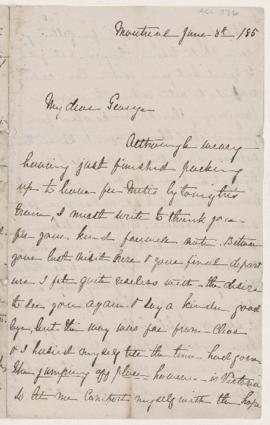 Montreal June 8th, 185
My dear George
Although weary
having just finished packing
up to leave for Metis by tonight's
train, I must write to thank you
for your kind farewell note. Between
your last visit here & your final depart
ure I felt quite restless with the desire
to see you again & say a kinder good
bye but the way was far from
& I busied myself till the time had gone
The jumping off place however is Victoria
so let me comfort myself with the hope